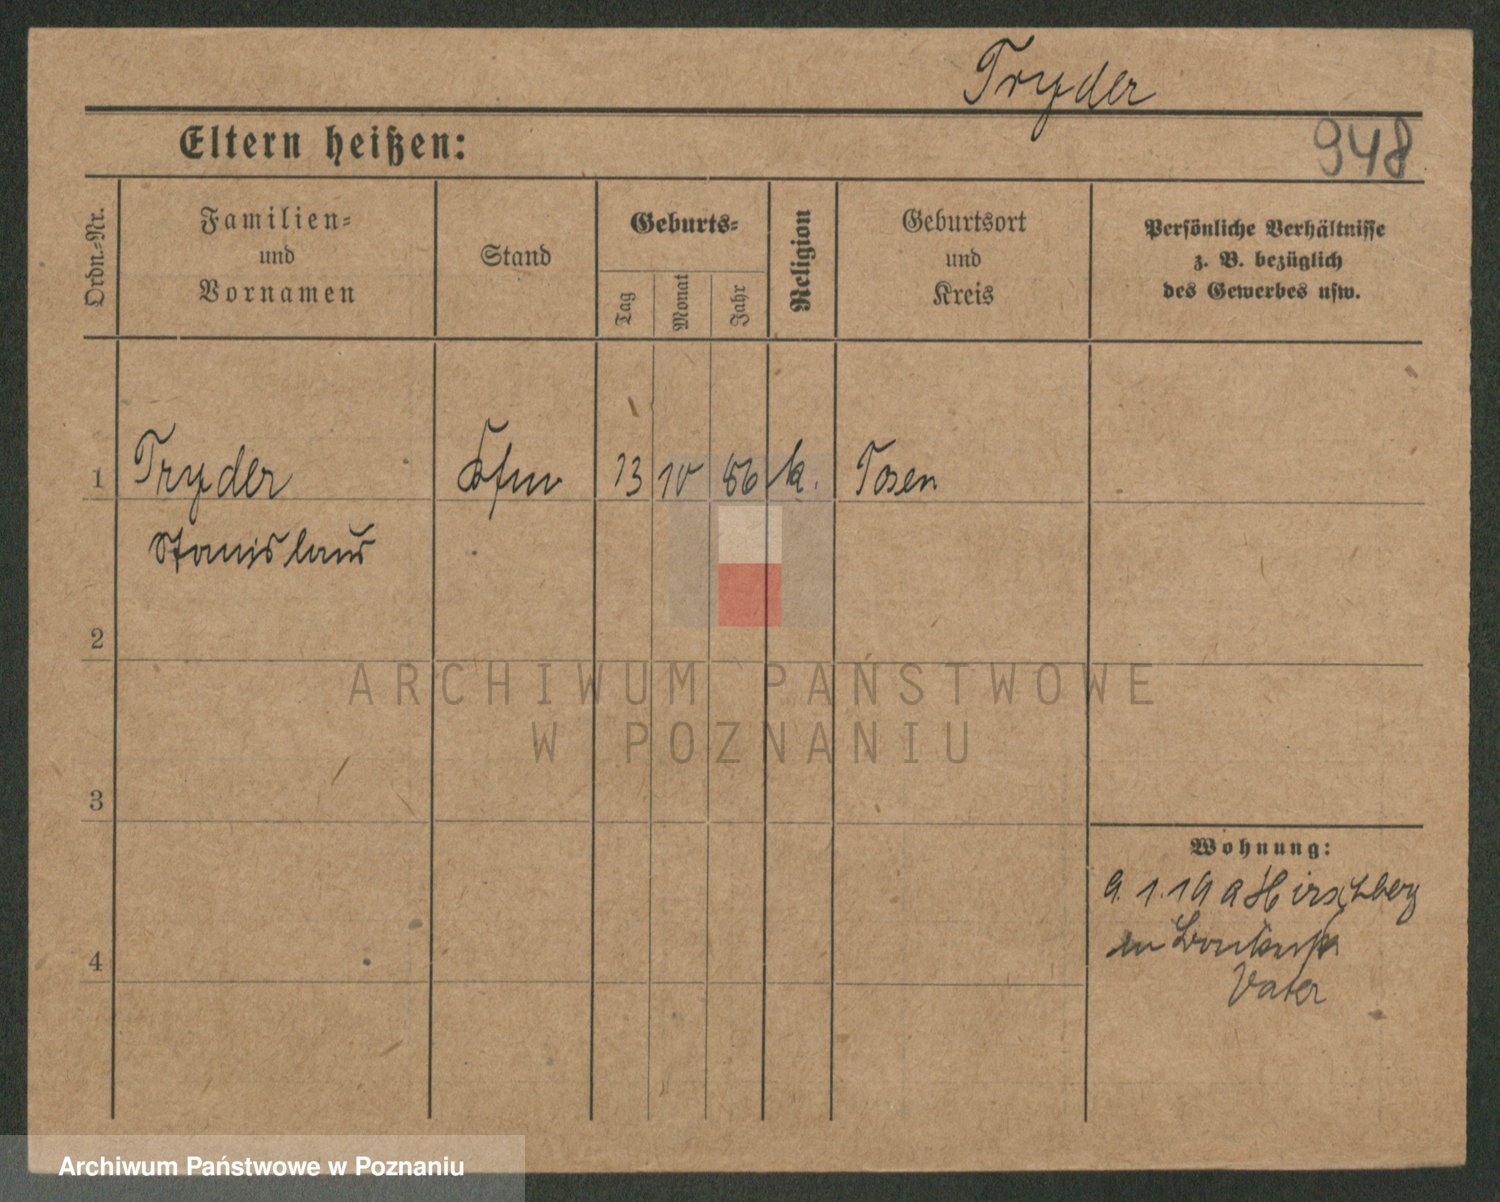 Tryder
948
Eltern heißen:
Ordn.=Nr.
Familien=
und
Vornamen
Stand
Geburts=
Tag
Monat
Jahr
Religion
Geburtsort
und
Kreis
Persönliche Verhältnisse
z. B. bezüglich
des Gewerbes usw.
1 Tryder Kfm 13 10 86 k. Posen
Stanislaus
2
3
4
Wohnung:
9. 1. 19 a Hirschberg
Vater
ARCHIWUM PAŃSTWOWE
W POZNANIU
Archiwum Państwowe w Poznaniu